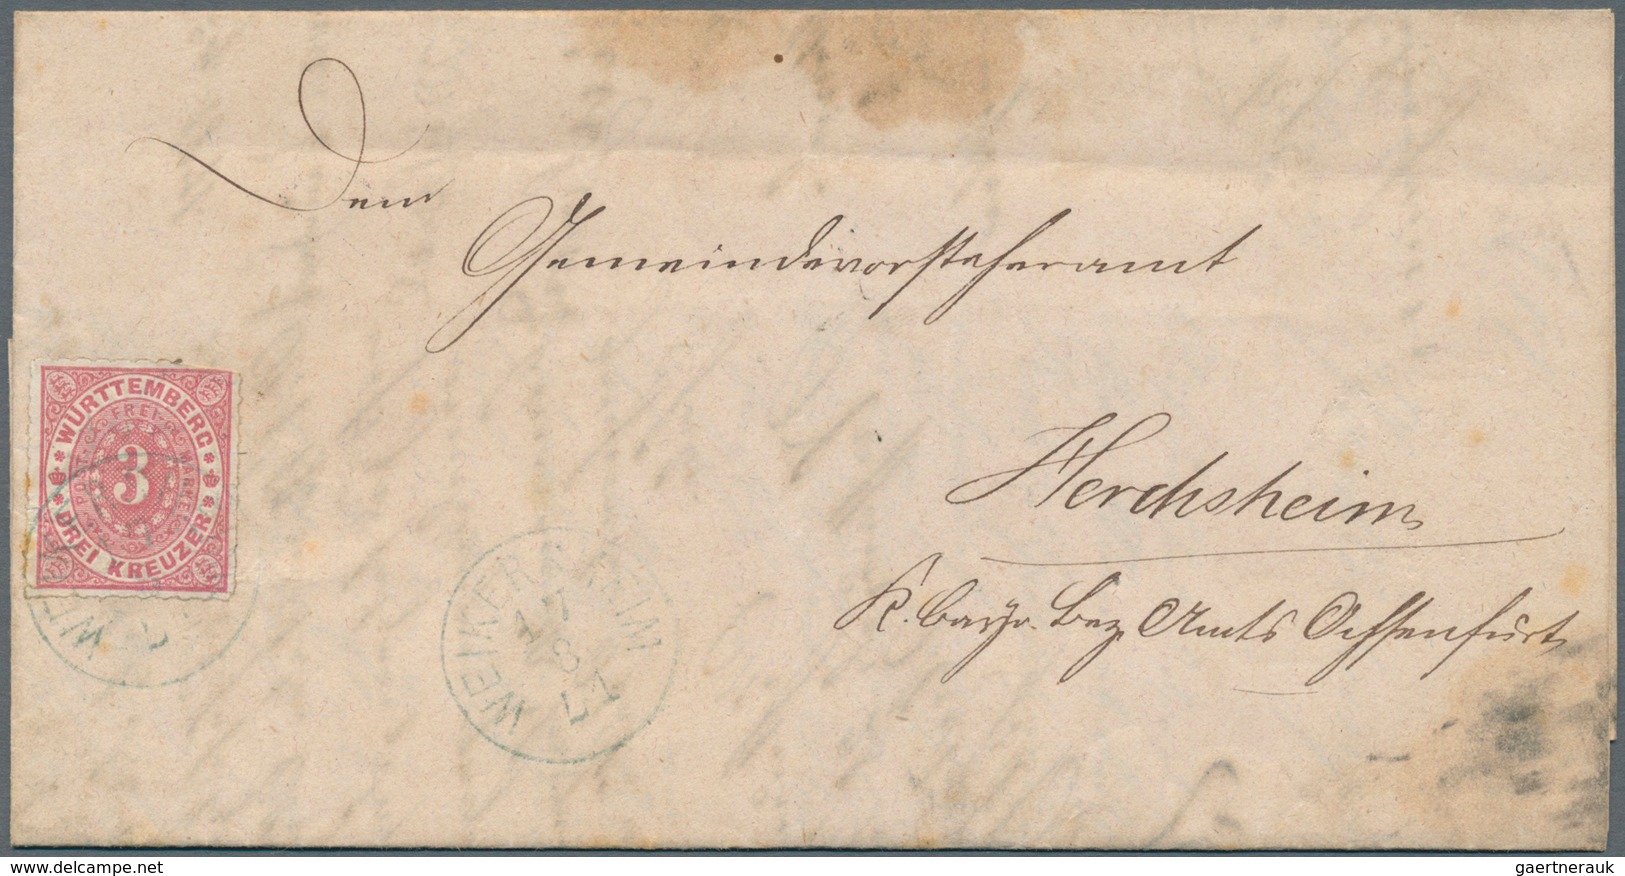 Dem
Gemeindevorsteheramt
Herchsheim
K. bayr. Bez. Amts Ochsenfurt
WÜRTTEMBERG
FREI-
POST-
MARKE
3
DREI KREUZER
WEIKERSHEIM
17
8
71
WEI
gaertnerauk